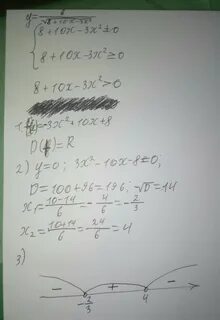 y = 6/√(8+10x-3x²)
8+10x-3x² ≠ 0
8+10x-3x² ≥ 0
8+10x-3x² > 0
1. = -3x²+10x+8
D(f) = R
2) y=0; 3x²-10x-8=0;
D = 100+96 = 196; √D = 14
x₁ = (10-14)/6 = -4/6 = -2/3
x₂ = (10+14)/6 = 24/6 = 4
3)
- + -
-2/3 4 x